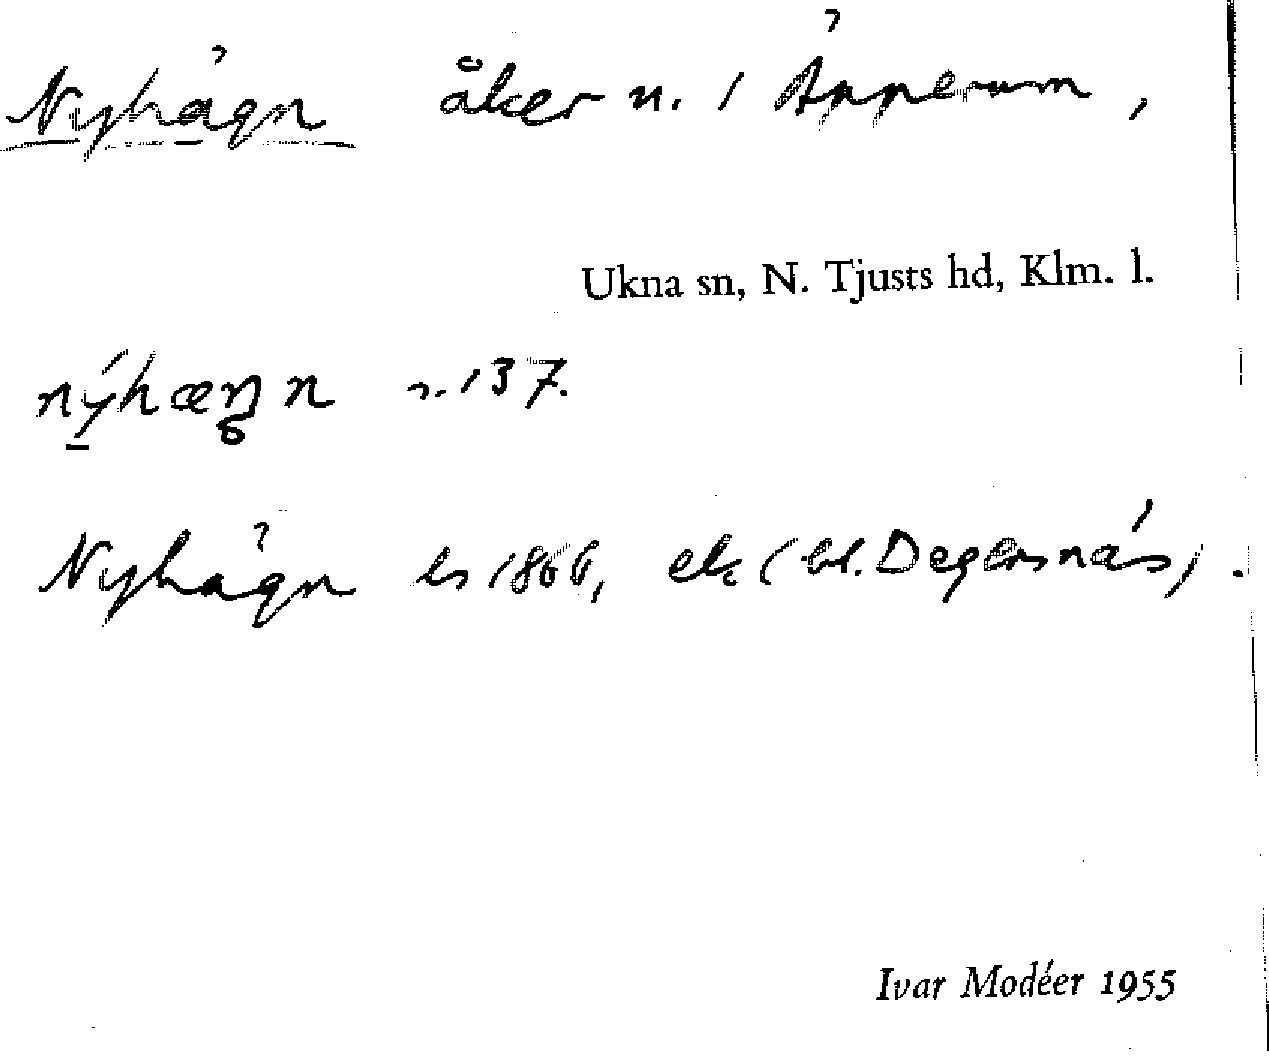 Nyhägn åker n. 1 Äpperum,
Ukna sn, N. Tjusts hd, Klm. l.
nýhæŋn n. 137.
Nyhägn ls 1866, ek (bl. Degersnäs).
Ivar Modéer 1955